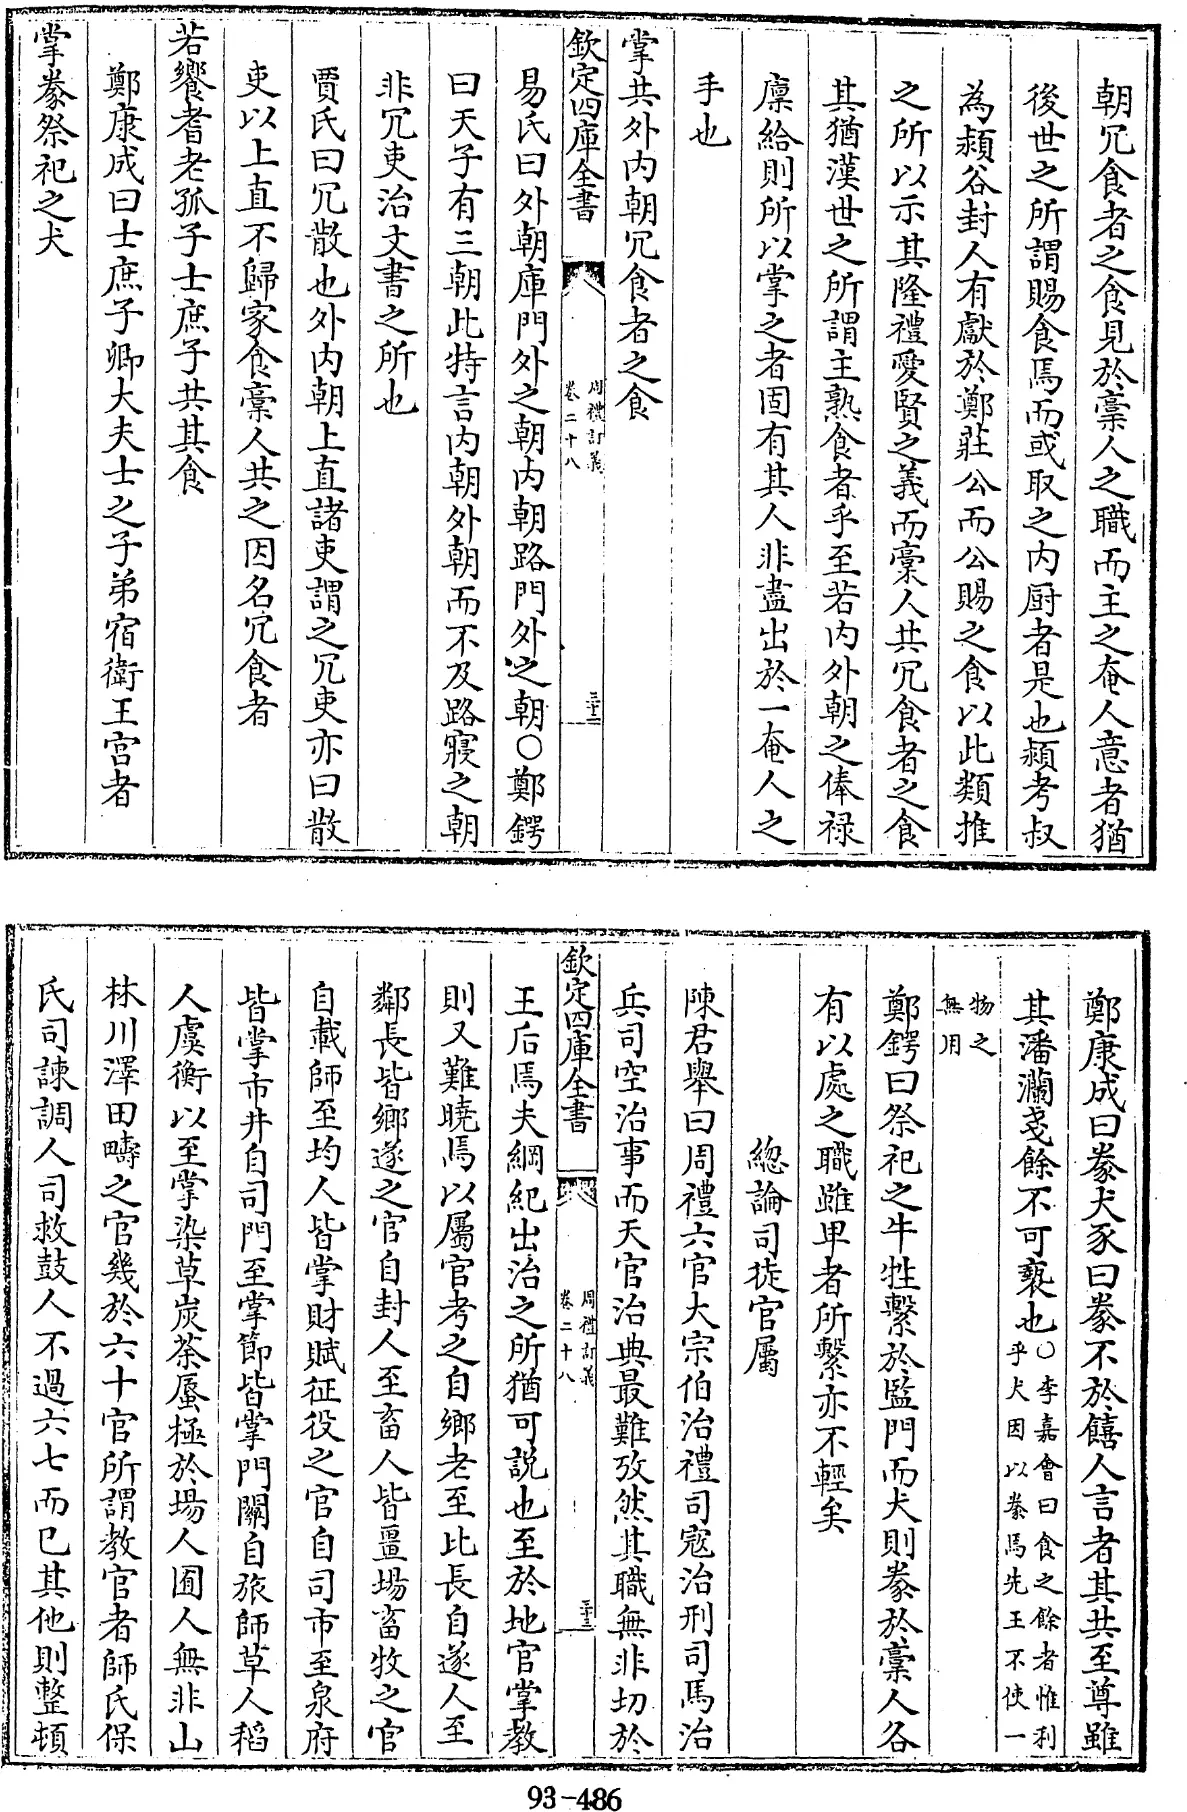 朝冗食者之食見於稾人之職而主之奄人意者猶
後世之所謂賜食焉而或取之内厨者是也潁考叔
為潁谷封人有獻於鄭莊公而公賜之食以此類推
之所以示其隆禮愛賢之義而稾人共冗食者之食
其猶漢世之所謂主熟食者乎至若内外朝之俸禄
廪給則所以掌之者固有其人非盡出於一奄人之
手也
掌共外内朝冗食者之食
欽定四庫全書
周禮訂義
卷二十八
三十二
易氏曰外朝庫門外之朝内朝路門外之朝○鄭鍔
曰天子有三朝此特言内朝外朝而不及路寢之朝
非冗吏治文書之所也
賈氏曰冗散也外内朝上直諸吏謂之冗吏亦曰散
吏以上直不歸家食稾人共之因名冗食者
若饗耆老孤子士庶子共其食
鄭康成曰士庶子卿大夫士之子弟宿衛王宫者
掌豢祭祀之犬
鄭康成曰豢犬豕曰豢不於饎人言者其共至尊雖
其潘瀾戔餘不可褻也○李嘉會曰食之餘者惟利
乎犬因以豢焉先王不使一
物之
無用
鄭鍔曰祭祀之牛牲繫於監門而犬則豢於稾人各
有以處之職雖卑者所繫亦不輕矣
總論司徒官屬
陳君舉曰周禮六官大宗伯治禮司宼治刑司馬治
兵司空治事而天官治典最難攷然其職無非切於
欽定四庫全書
周禮訂義
卷二十八
三十三
王后焉夫綱紀出治之所猶可説也至於地官掌教
則又難曉焉以屬官考之自鄉老至比長自遂人至
鄰長皆鄉遂之官自封人至畜人皆畺場畜牧之官
自載師至均人皆掌財賦征役之官自司市至泉府
皆掌市井自司門至掌節皆掌門關自旅師草人稻
人虞衡以至掌染草炭荼蜃極於場人囿人無非山
林川澤田疇之官幾於六十官所謂教官者師氏保
氏司諫調人司救鼓人不過六七而已其他則整頓
93-486